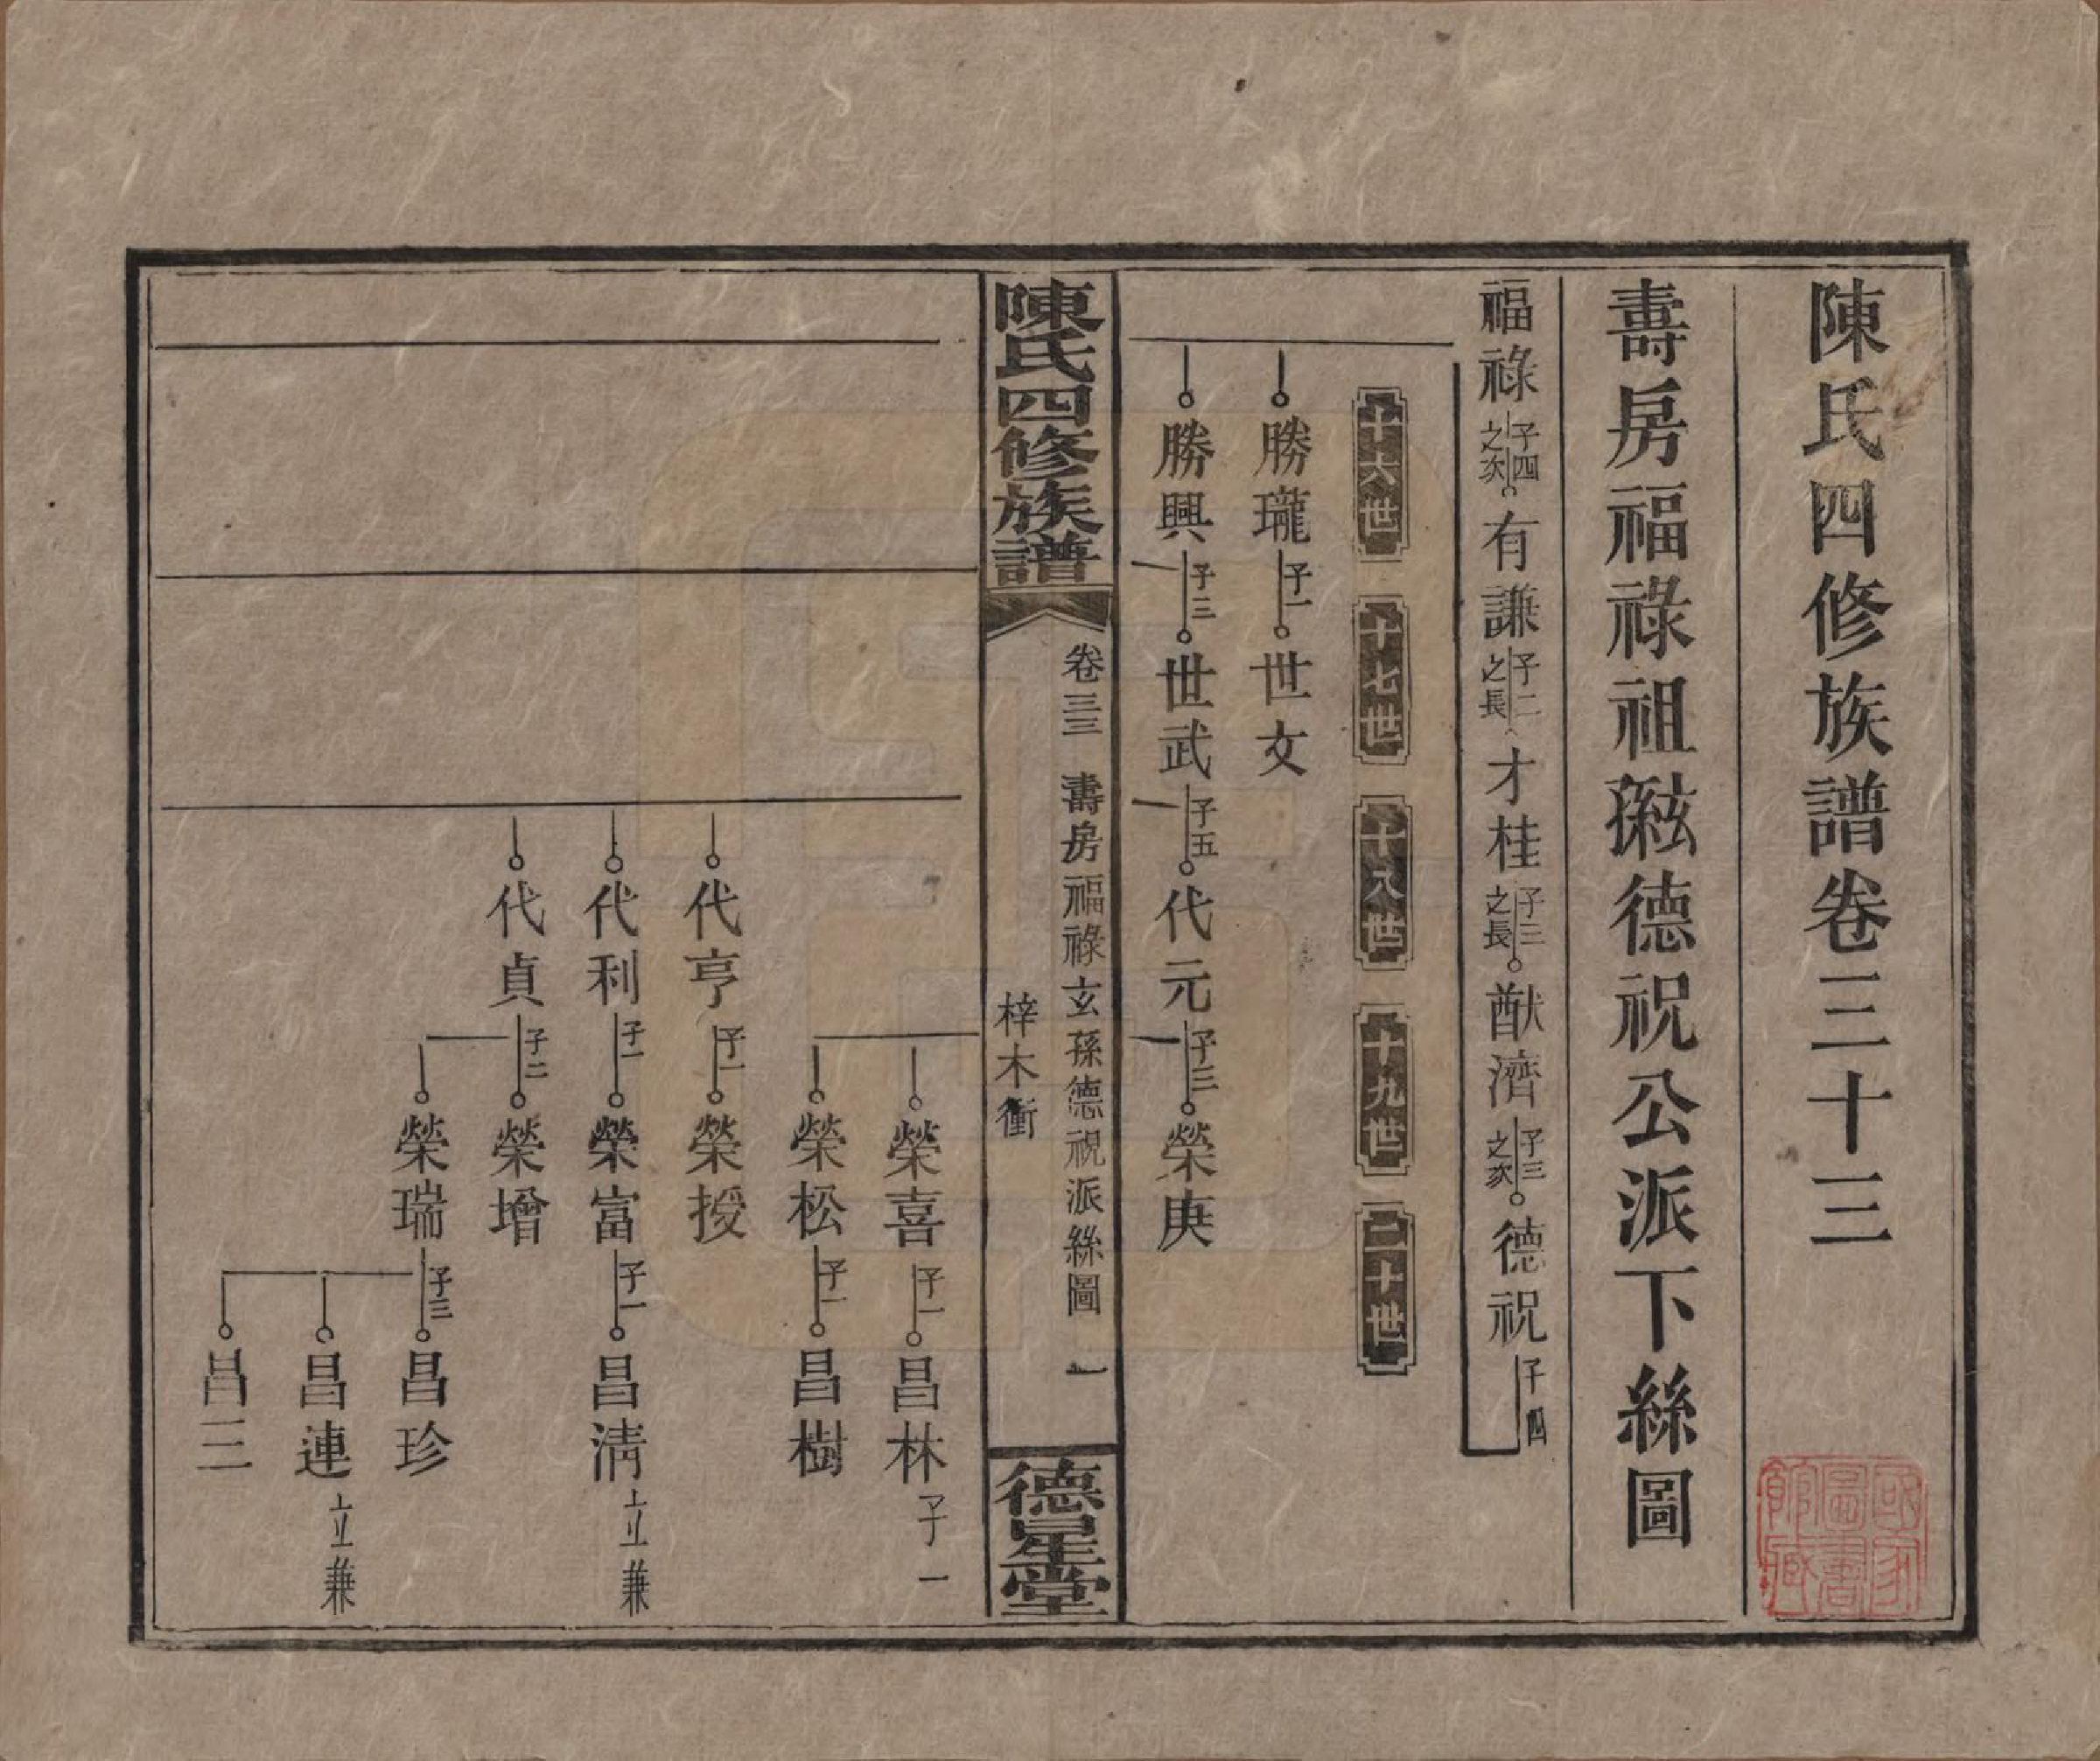 陳氏四修族譜卷三十三
壽房福祿祖德祝公派下絲圖
福祿 子四之次 有謙 子二之長 才桂 子三之長 猷濟 子三之次 德祝 子四
十六世 十七世 十八世 十九世 二十世
勝瓏 子一 世文
勝興 子三 世武 子五 代元 子三 榮庚
陳氏四修族譜
卷三三 壽房福祿玄孫德祝派絲圖 一
梓木衝
德星堂
榮喜 子一 昌林 子一
榮松 子一 昌樹
代亨 子一 榮授
代利 子一 榮富 子一 昌清 立兼
代貞 子二 榮增
榮瑞 子三 昌珍
昌連 立兼
昌三
國家圖書館藏